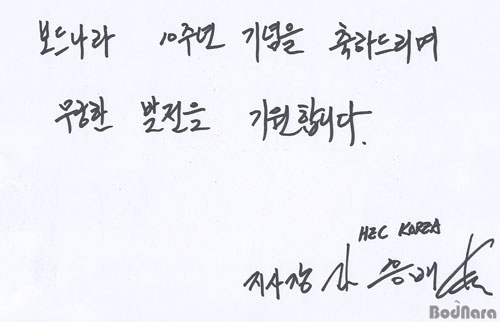 보드나라 10주년 기념을 축하드리며
무궁한 발전을 기원합니다.
HEC KOREA
지사장
BodNara